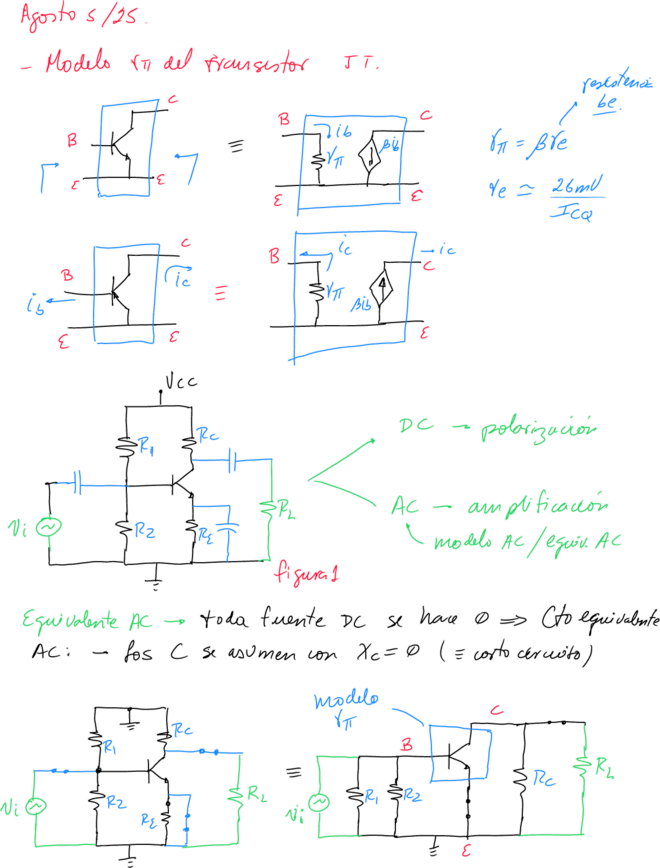 Agosto 5/25.
- Modelo rπ del transistor JT.
resistencia
be.
C
B
E
E
≡
B
ib
rπ
βib
C
E
E
rπ = βre
re ≃ 26mV / ICQ
B
C
ib
ic
E
E
≡
B
ic
rπ
βib
ic
C
E
Vcc
R1
Rc
R2
RE
RL
Vi
figura1
DC → polarización
AC → amplificación
modelo AC/equiv. AC
Equivalente AC → toda fuente DC se hace 0 ⇒ Cto equivalente
AC: → Los C se asumen con Xc=0 (≡ corto circuito)
R1
Rc
R2
RE
RL
Vi
≡
modelo
rπ
B
C
E
Vi
R1
R2
Rc
RL